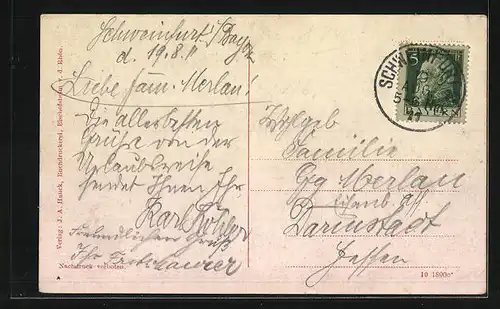 Schweinfurt i/Bayer
d. 19.8.11
Liebe Fam. Merlau!
Die allerbesten
Grüße von der
Urlaubsreise
sendet Ihnen Ihr
Karl Köhler
Freundlichen Gruß
Ihr
Nachdruck verboten.
Verlag: J. A. Hauck, Buchdruckerei, Bischofsheim v. d. Rhön.
SCHWEINFURT
5
BAYERN
Wohlgeb
Familie
Gg Merlau
Eisenb. Ass
Darmstadt
Hessen